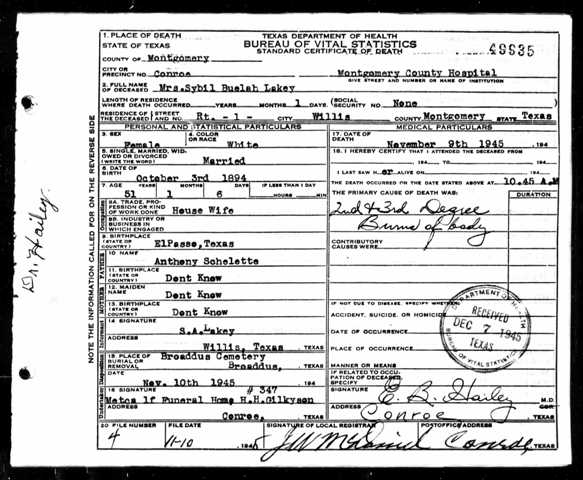 1. PLACE OF DEATH
STATE OF TEXAS
TEXAS DEPARTMENT OF HEALTH
BUREAU OF VITAL STATISTICS
STANDARD CERTIFICATE OF DEATH
49635
COUNTY OF Montgomery
CITY OR PRECINCT NO. Conroe
Montgomery County Hospital
GIVE STREET AND NUMBER OR NAME OF INSTITUTION
2. FULL NAME OF DECEASED Mrs.Sybil Buelah Lakey
LENGTH OF RESIDENCE WHERE DEATH OCCURRED YEARS MONTHS 1 DAYS
(SOCIAL SECURITY NO. None
RESIDENCE OF THE DECEASED (STREET AND NO. Rt. - 1 - CITY Willis COUNTY Montgomery STATE Texas
PERSONAL AND STATISTICAL PARTICULARS
MEDICAL PARTICULARS
3. SEX
Female
4. COLOR OR RACE
White
17. DATE OF DEATH
November 9th 1945. 194
5. SINGLE, MARRIED, WIDOWED OR DIVORCED (WRITE THE WORD)
Married
18. I HEREBY CERTIFY THAT I ATTENDED THE DECEASED FROM
194 TO 194
6. DATE OF BIRTH
October 3rd 1894
I LAST SAW H er ALIVE ON 194
THE DEATH OCCURRED ON THE DATE STATED ABOVE AT 10.45 A.M
7. AGE YEARS MONTHS DAYS IF LESS THAN 1 DAY
51 1 6 HOURS MIN
THE PRIMARY CAUSE OF DEATH WAS:
DURATION
2nd & 3rd Degree
Burns of body
8A. TRADE, PROFESSION OR KIND OF WORK DONE
House Wife
8B. INDUSTRY OR BUSINESS IN WHICH ENGAGED
9. BIRTHPLACE (STATE OR COUNTRY)
ElPasso,Texas
CONTRIBUTORY CAUSES WERE:
FATHER
10 NAME
Anthony Schelette
11. BIRTHPLACE (STATE OR COUNTRY)
Dont Know
MOTHER
12. MAIDEN NAME
Dont Know
13. BIRTHPLACE (STATE OR COUNTRY)
Dont Know
IF NOT DUE TO DISEASE, SPECIFY WHETHER:
ACCIDENT, SUICIDE, OR HOMICIDE
DATE OF OCCURRENCE
PLACE OF OCCURRENCE
MANNER OR MEANS
DEPARTMENT OF HEALTH
RECEIVED
DEC 7 1945
TEXAS
BUREAU OF VITAL STATISTICS
14 SIGNATURE
S.A.Lakey
ADDRESS
Willis, Texas , TEXAS
15 PLACE OF BURIAL OR REMOVAL
Broaddus Cemetery
Broaddus, , TEXAS
IF RELATED TO OCCUPATION OF DECEASED, SPECIFY
DATE
Nov. 10th 1945 194
16 SIGNATURE
# 347
Metcalf Funeral Home H.H.Gilkyson
SIGNATURE
E. B. Hailey M.D
ADDRESS
Conroe, TEXAS
ADDRESS
Conroe TEXAS
20 FILE NUMBER
4
FILE DATE
11-10 194
SIGNATURE OF LOCAL REGISTRAR
J W McDaniel
POSTOFFICE ADDRESS
Conroe, TEXAS
NOTE THE INFORMATION CALLED FOR ON THE REVERSE SIDE
Dr. Hailey